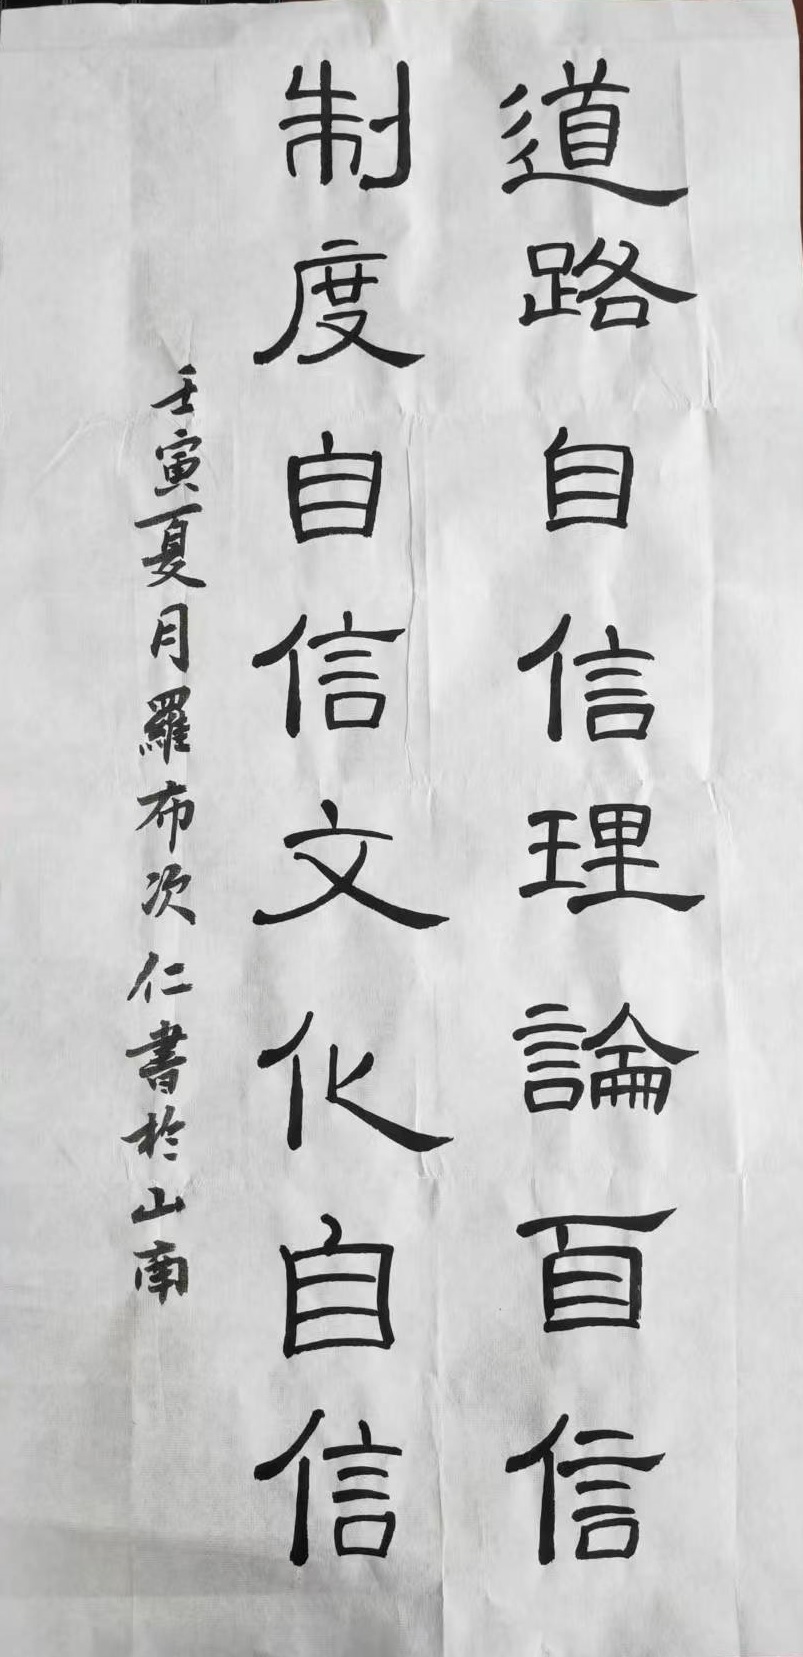 道路自信理論百信
制度自信文化自信
壬寅夏月羅布次仁書於山南